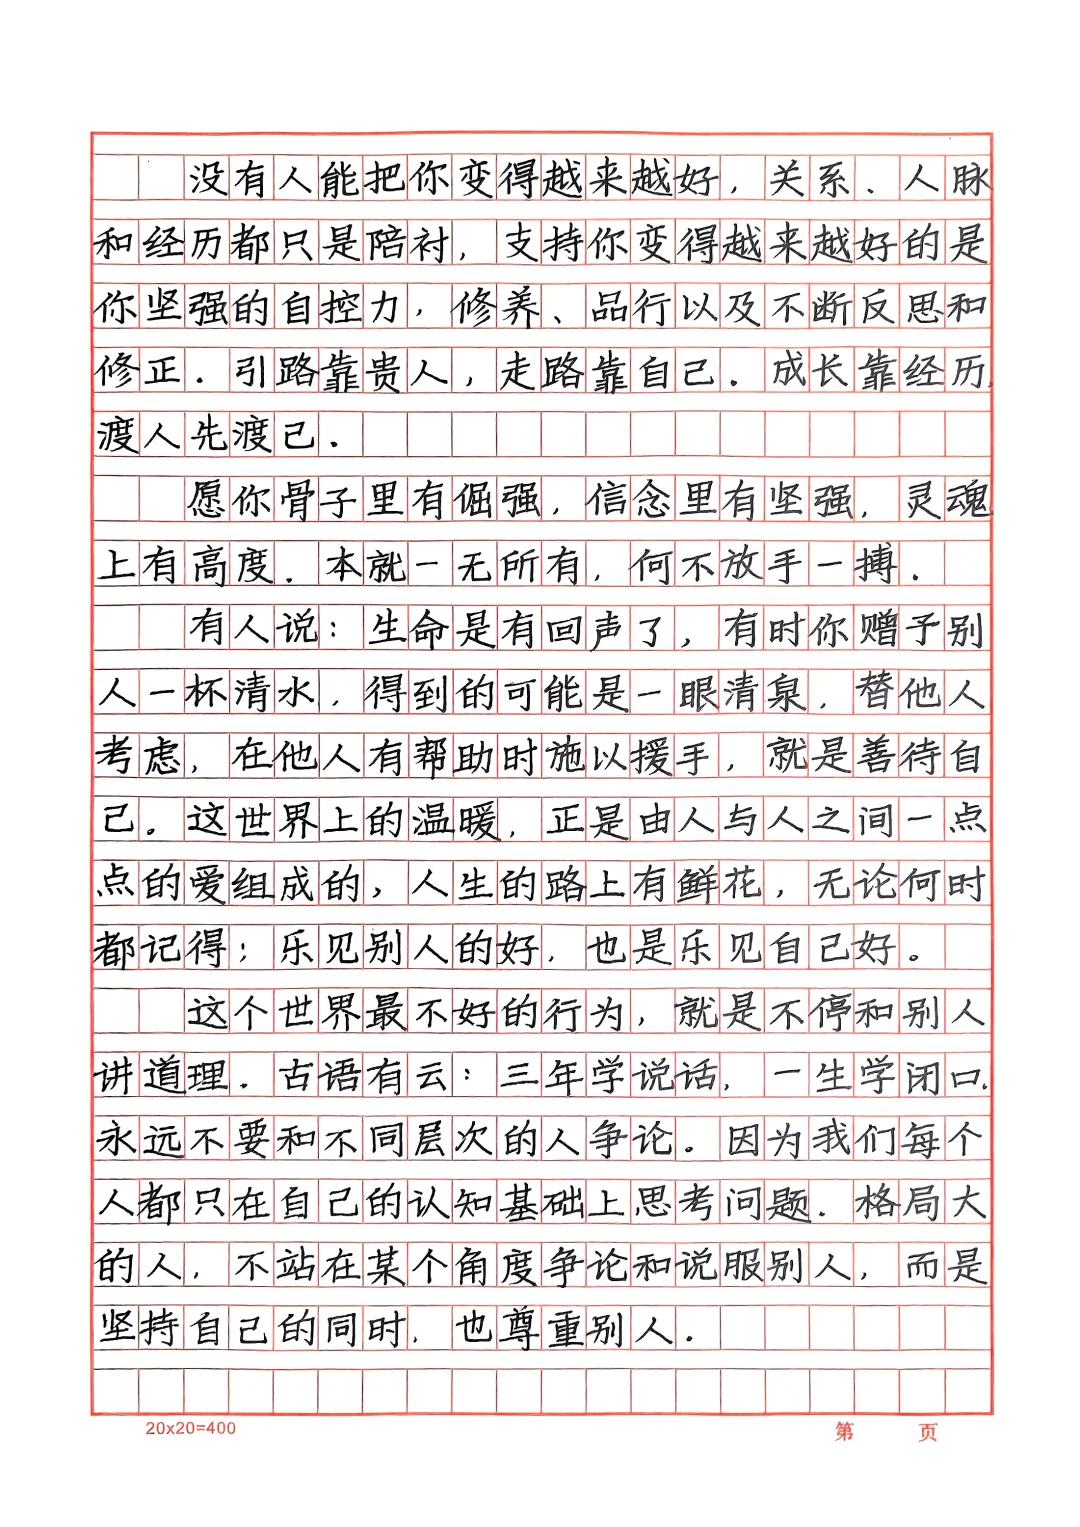 没有人能把你变得越来越好，关系、人脉
和经历都只是陪衬，支持你变得越来越好的是
你坚强的自控力，修养、品行以及不断反思和
修正．引路靠贵人，走路靠自己．成长靠经历，
渡人先渡己．
愿你骨子里有倔强，信念里有坚强，灵魂
上有高度．本就一无所有，何不放手一搏．
有人说：生命是有回声了，有时你赠予别
人一杯清水，得到的可能是一眼清泉，替他人
考虑，在他人有帮助时施以援手，就是善待自
己。这世界上的温暖，正是由人与人之间一点
点的爱组成的，人生的路上有鲜花，无论何时
都记得；乐见别人的好，也是乐见自己好。
这个世界最不好的行为，就是不停和别人
讲道理．古语有云：三年学说话，一生学闭口．
永远不要和不同层次的人争论。因为我们每个
人都只在自己的认知基础上思考问题．格局大
的人，不站在某个角度争论和说服别人，而是
坚持自己的同时，也尊重别人．
20x20=400 第 页